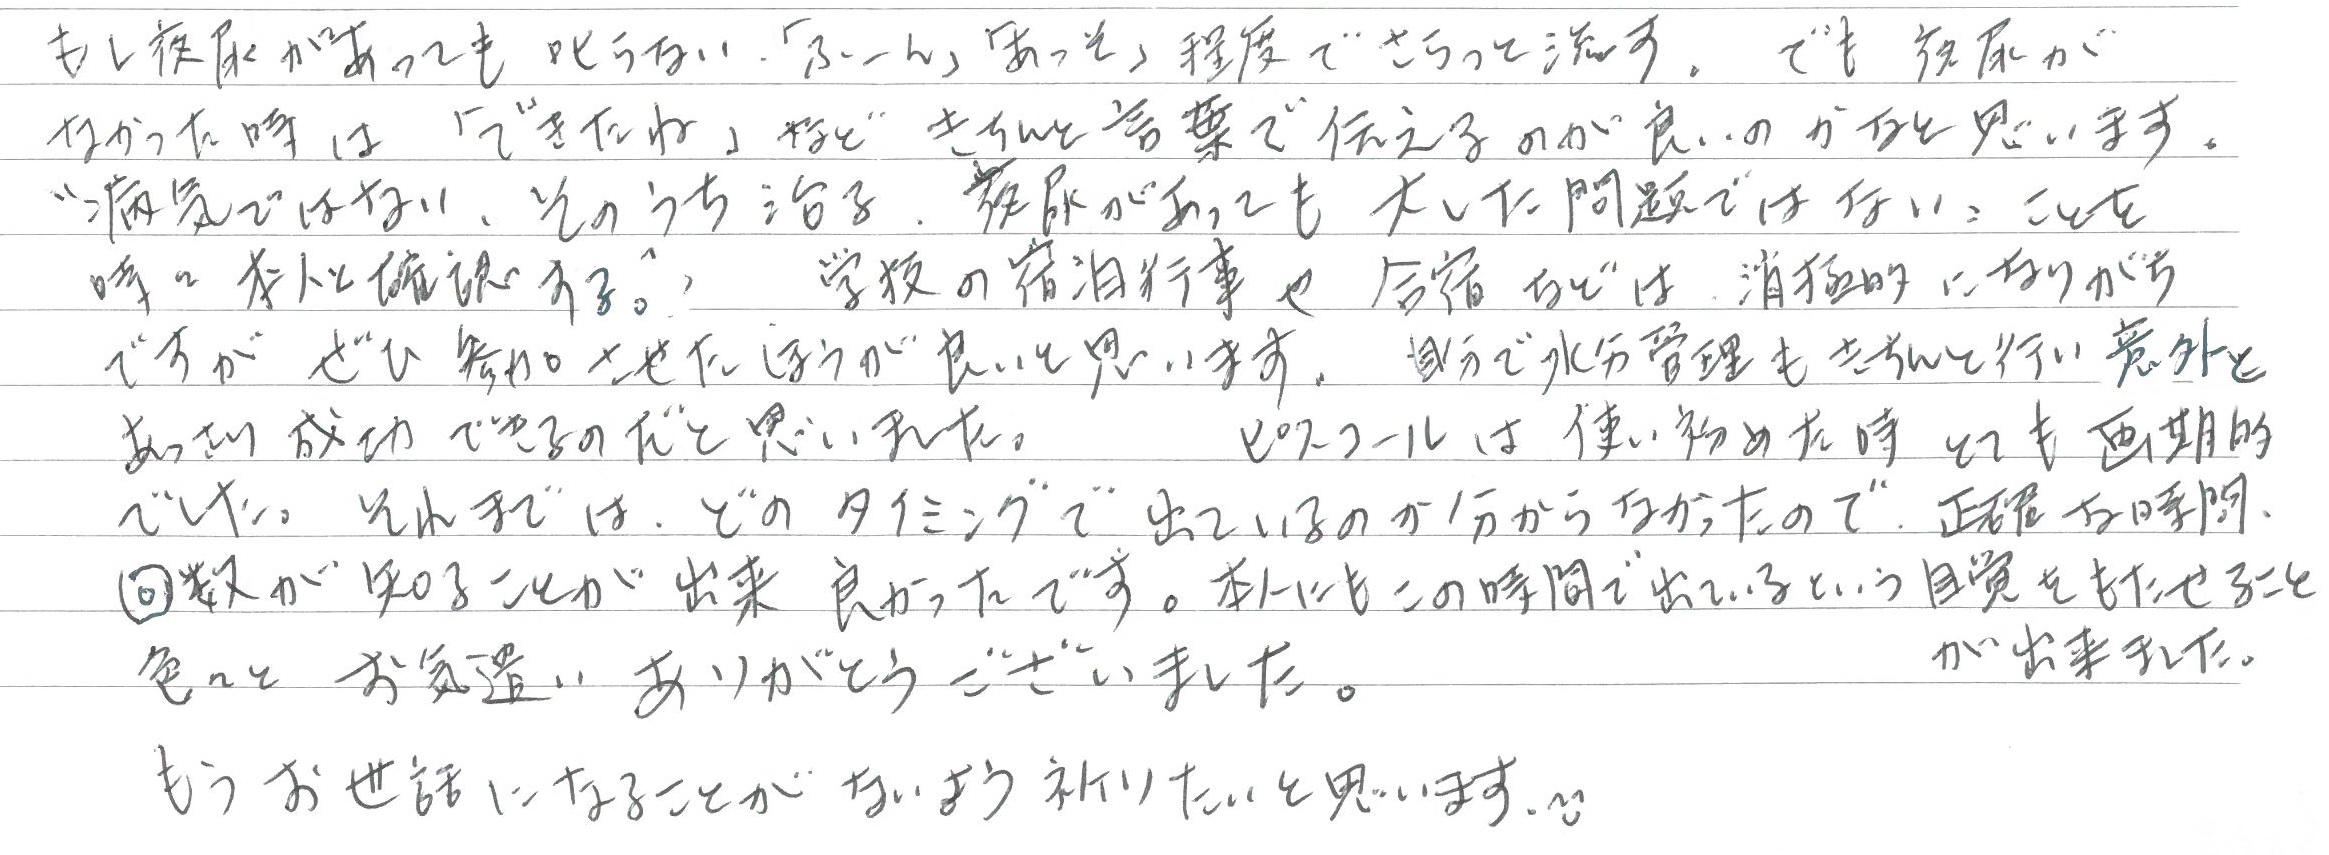 もし夜尿があっても 叱らない.「ふーん」「あっそ」程度で さらっと流す。 でも 夜尿が
なかった時は 「できたね」など きちんと言葉で伝えるのが良いのかなと思います。
"病気ではない、そのうち治る、夜尿があっても 大した問題ではない" ことを
時々 本人と確認する。" 学校の宿泊行事や 合宿などは、消極的になりがち
ですが ぜひ 参加させたほうが良いと思います。 自分で水分管理もきちんと行い 意外と
あっさり成功できるのだと思いました。 ピスコールは 使い初めた時 とても画期的
でした。それまでは、どのタイミングで出ているのか分からなかったので、正確な時間、
回数が知ることが出来 良かったです。本人にもこの時間で出ているという自覚をもたせること
が出来ました。
色々と お気遣い ありがとうございました。
もう お世話になることが ないよう 祈りたいと思います。